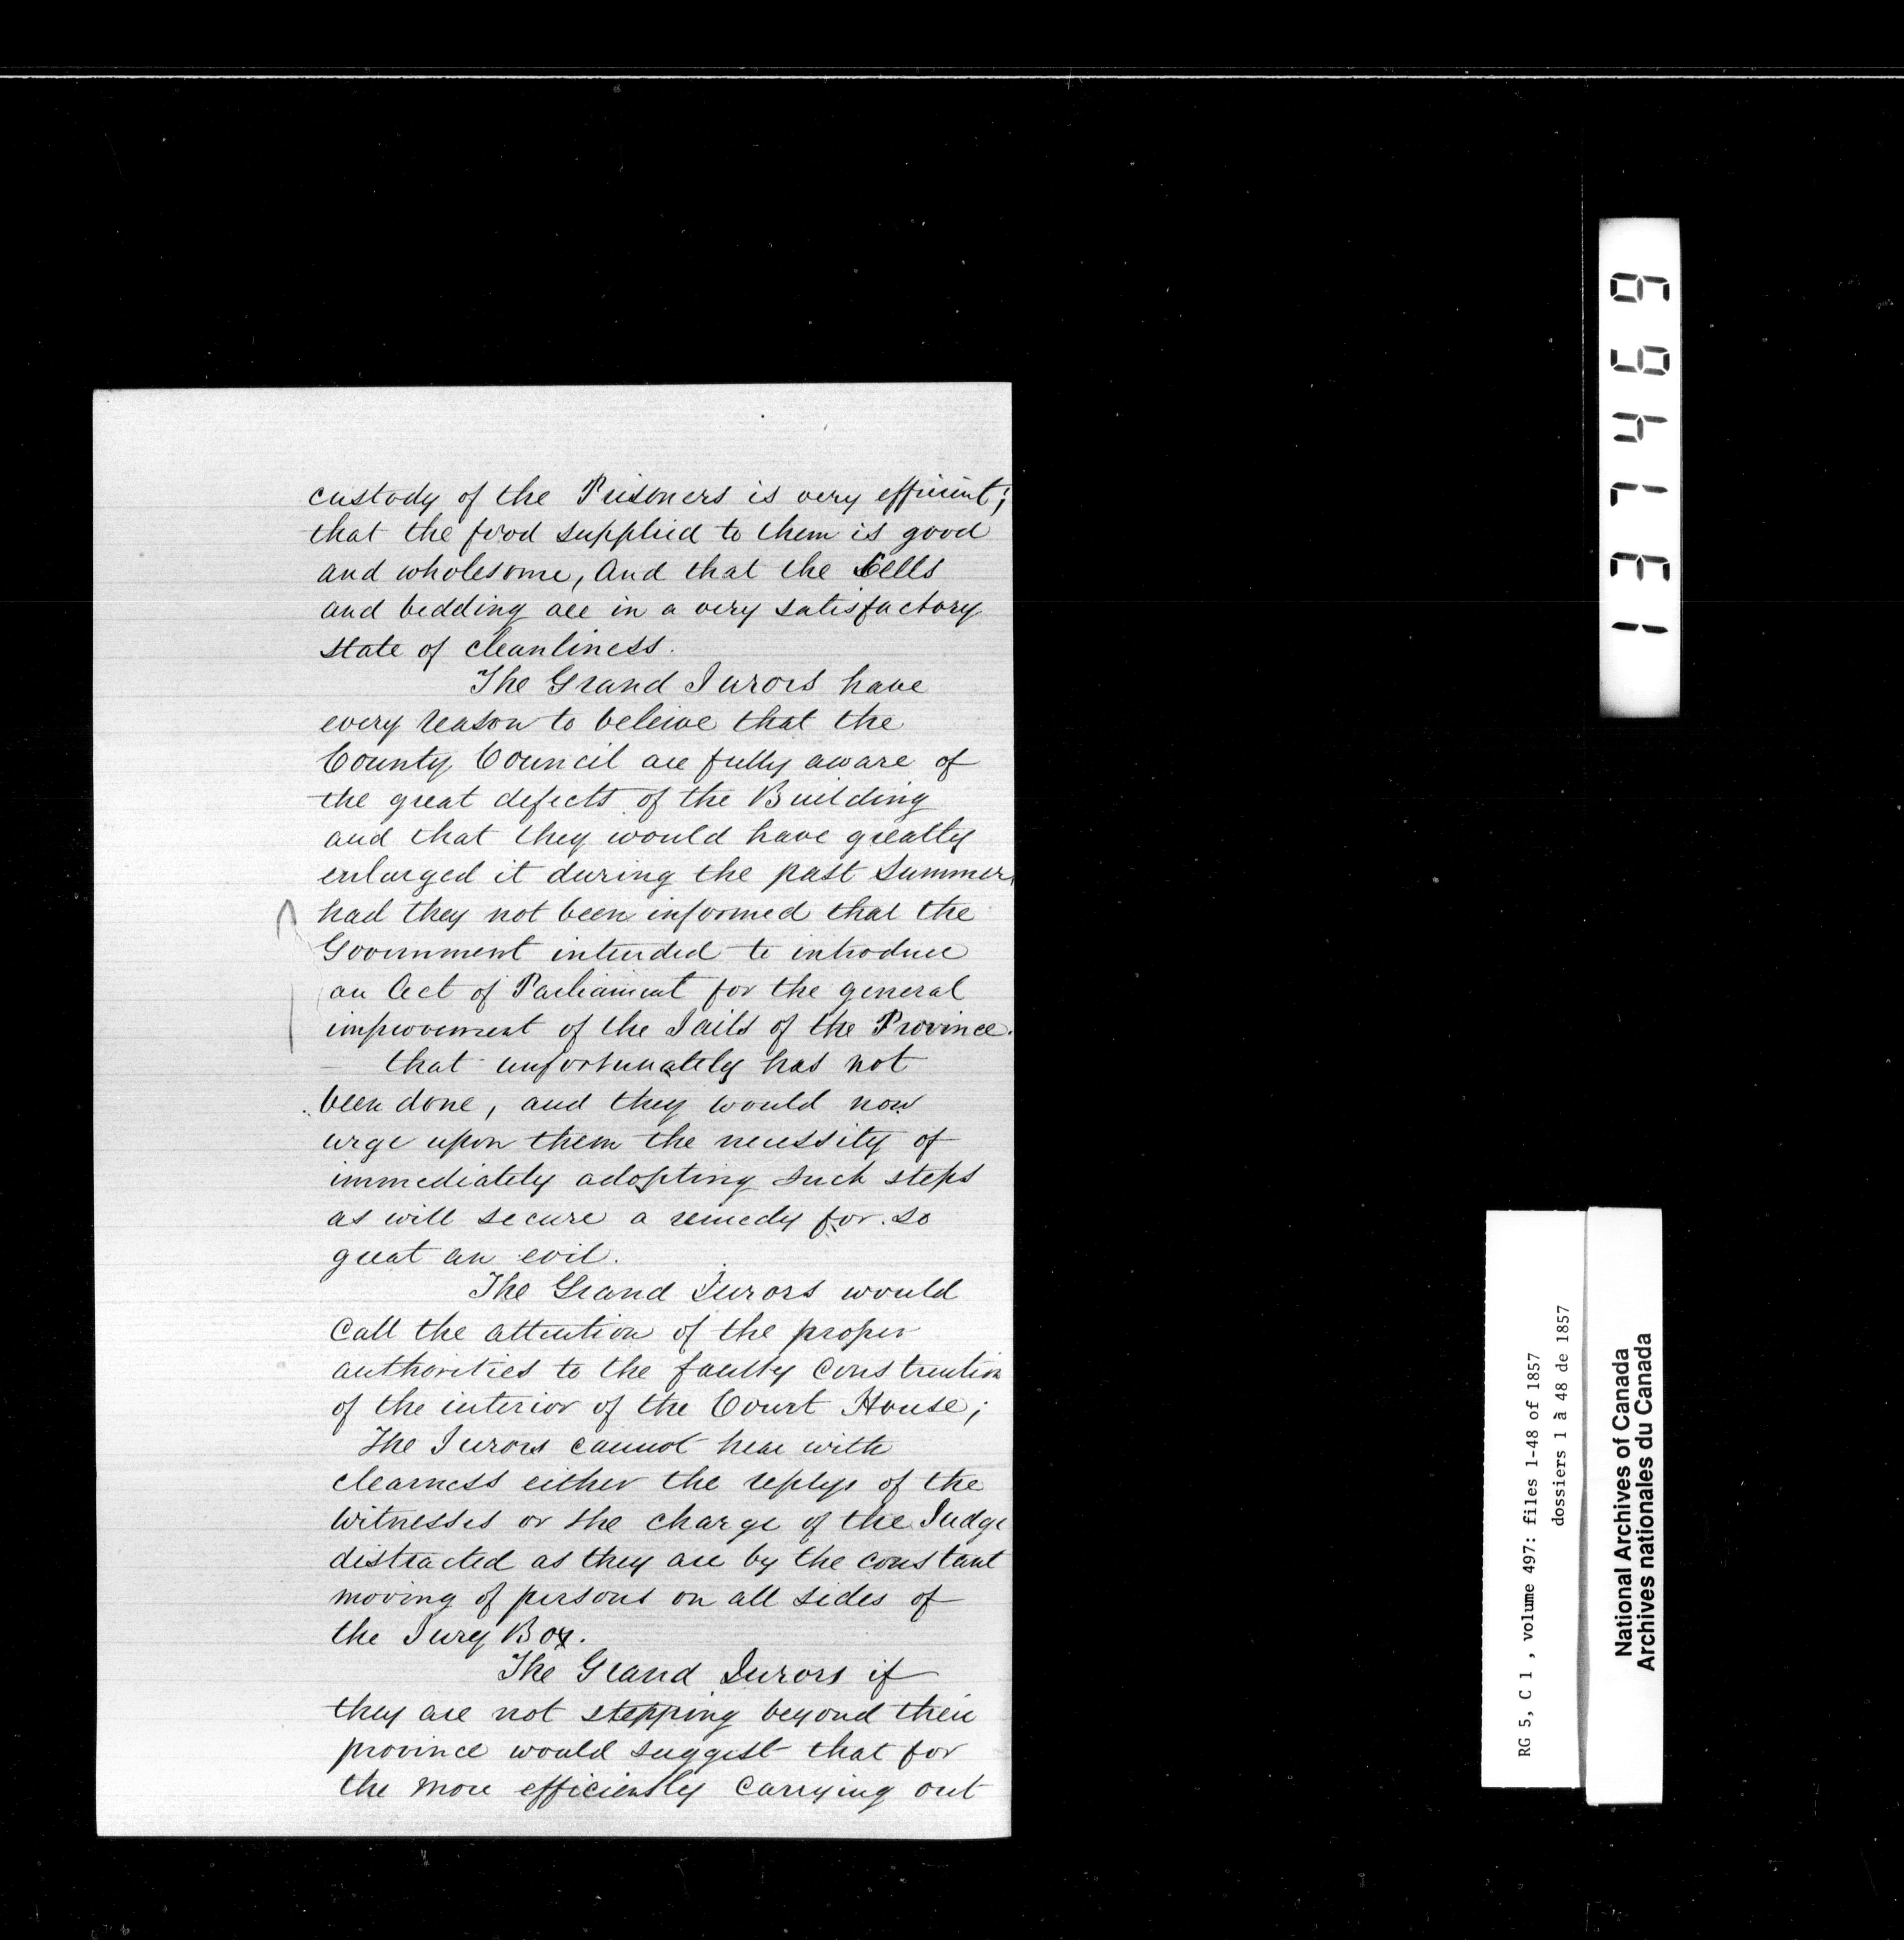 custody of the Prisoners is very efficient;
that the food supplied to them is good
and wholesome, And that the Cells
and bedding are in a very satisfactory
state of cleanliness.
The Grand Jurors have
every reason to beleive that the
County Council are fully aware of
the great defects of the Building
and that they would have greatly
enlarged it during the past Summer,
had they not been informed that the
Government intended to introduce
an Act of Parliament for the general
improvement of the Jails of the Province.
– that unfortunately has not
been done, and they would now
urge upon them the necessity of
immediately adopting such steps
as will secure a remedy for so
great an evil.
The Grand Jurors would
Call the attention of the proper
authorities to the faulty Construction
of the interior of the Court House;
The Jurors cannot hear with
clearness either the replys of the
Witnesses or the charge of the Judge
distracted as they are by the constant
moving of persons on all sides of
the Jury Box.
The Grand Jurors if
they are not stepping beyond their
province would suggest that for
the more efficiently Carrying out
137469
RG 5, C 1 , volume 497: files 1-48 of 1857
dossiers 1 à 48 de 1857
National Archives of Canada
Archives nationales du Canada